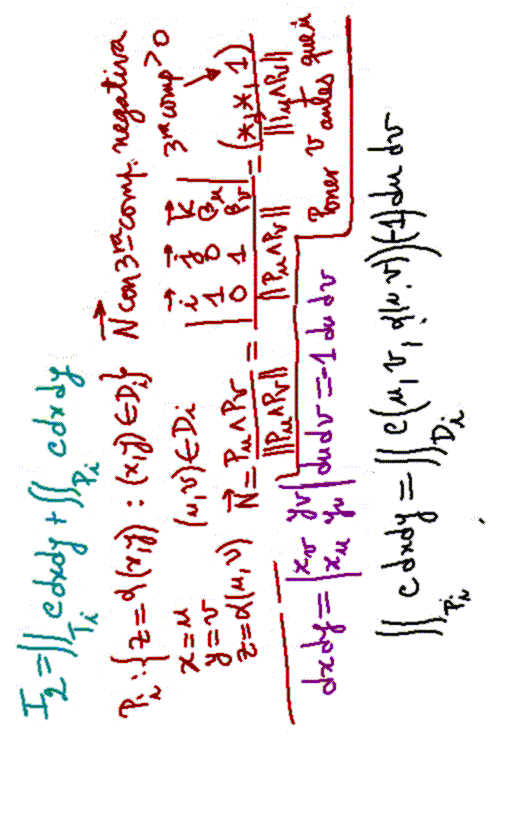 I₂ = ∬_{T_i} c dxdy + ∬_{P_i} c dxdy
P_i : { z = α(x,y) : (x,y) ∈ D_i } N⃗ con 3ʳᵃ comp. negativa
x = u
y = v (u,v) ∈ D_i
z = α(u,v)
3ʳᵃ comp > 0
N⃗ = P_u ∧ P_v / ||P_u ∧ P_v|| = | i⃗ j⃗ k⃗ ; 1 0 β_u ; 0 1 β_v | / ||P_u ∧ P_v|| = (*, *, 1) / ||P_u ∧ P_v||
Poner v antes que u
dxdy = | x_v y_v ; x_u y_u | dudv = -1 du dv
∬_{P_i} c dxdy = ∬_{D_i} c(u, v, α(u,v)) (-1) du dv